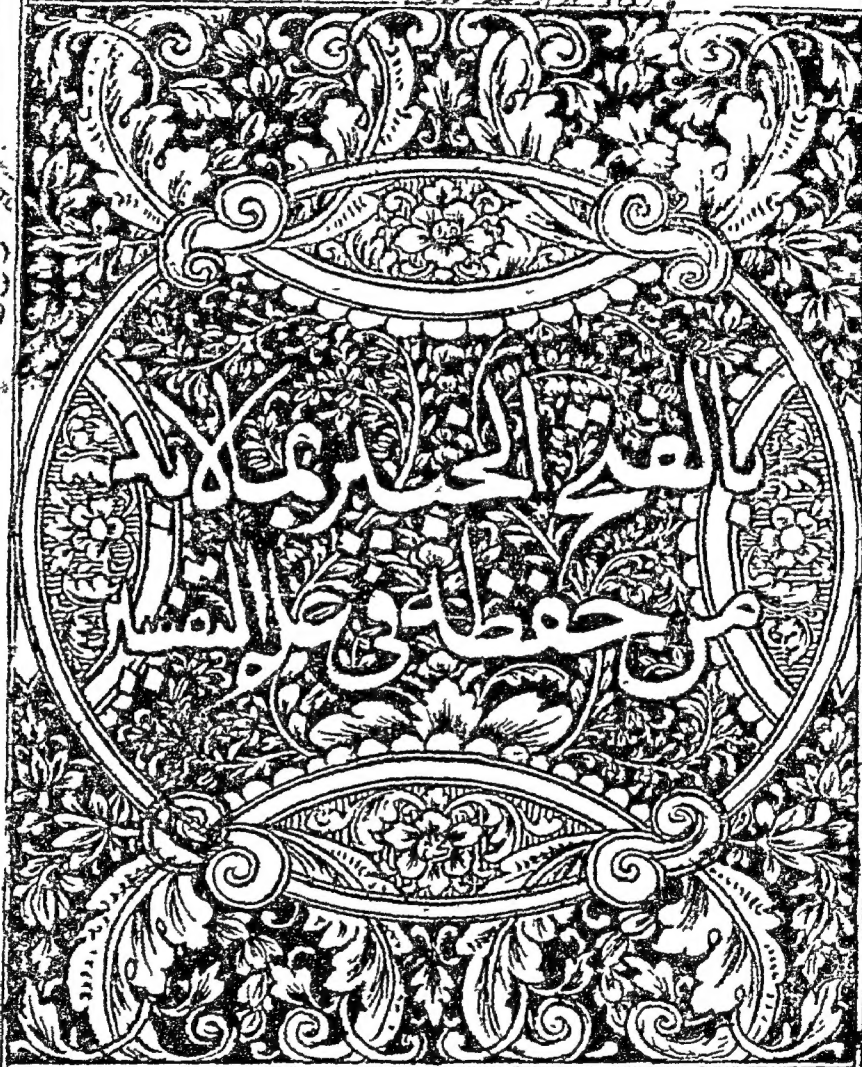 بالفتح الخبير بما لابد
من حفظه في علم التفسير